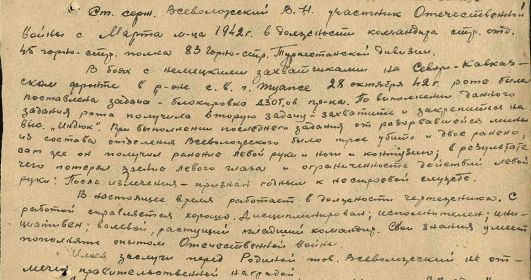 Ст. серж. Всеволожский В.Н. участник Отечественной
войны с Марта м-ца 1942 г. в должности командира стр. отд.
45 горно-стр. полка 83 горно-стр. Туркестанской дивизии.
В боях с немецкими захватчиками на Северо-Кавказ-
ском фронте в р-оне с. в. г. Туапсе 28 октября 42 г. роте была
поставлена задача - блокировка ДЗОТ,ов пр-ка. По выполнении данного
задания рота получила вторую задачу - захватить и закрепиться на
выс. "Индюк". При выполнении последнего задания от разорвавшейся мины
из состава отделения Всеволожского было трое убито и двое ранено,
сам же он получил ранение левой руки и ноги и контузию, в результате
чего потерял зрение левого глаза и ограниченность действий левой
руки. После излечения - признан годным к нестроевой службе.
В настоящее время работает в должности чертежника. С
работой справляется хорошо. Дисциплинирован; исполнителен; ини-
циативен; волевой, растущий младший командир. Свои знания умеет
пополнять опытом Отечественной войны.
Имея заслуги перед Родиной тов. Всеволожский не от-
мечен правительственной наградой